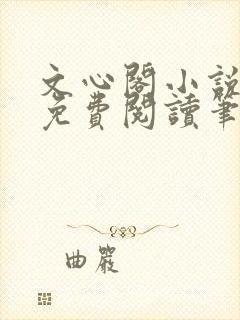 文心閣小說
免費閱讀筆
曲嚴